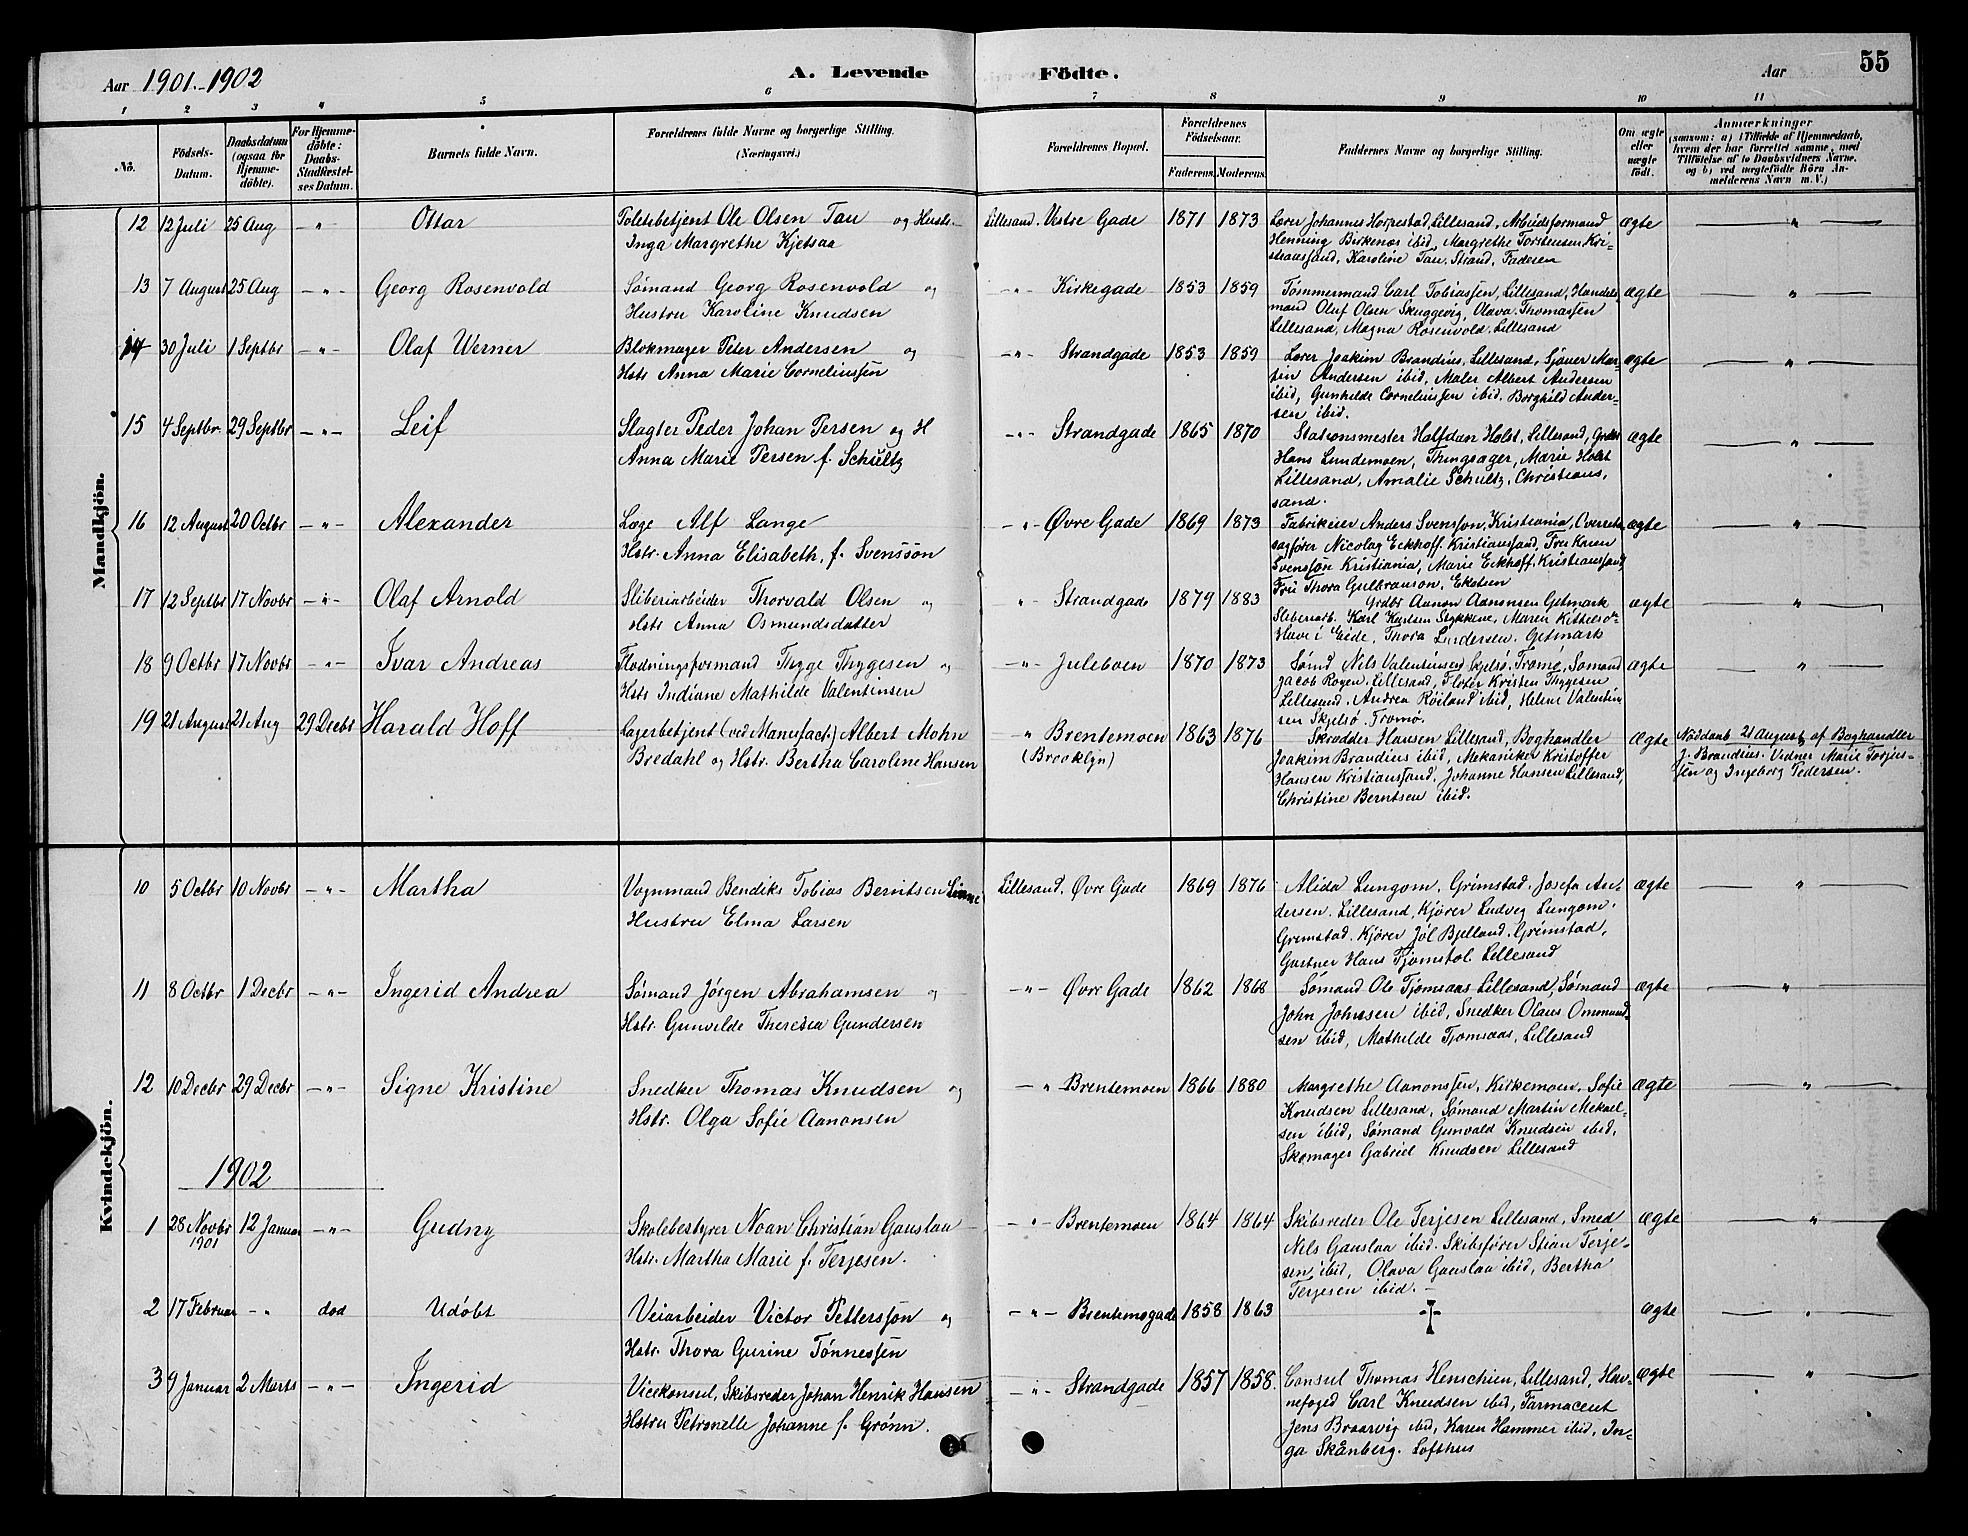 Aar 1901.-1902
A. Levende Födte.
Aar 55
1 2 3 4 5 6 7 8 9 10 11
No.
Födsels-Datum.
Daabsdatum (ogsaa for Hjemme-döbte).
For Hjemme-döbte: Daabs-Stadfæstel-ses Datum.
Barnets fulde Navn.
Forældrenes fulde Navne og borgerlige Stilling.
(Næringsvei.)
Forældrenes Bopæl.
Forældrenes Födselsaar.
Faderens. Moderens.
Faddernes Navne og borgerlige Stilling.
Om ægte eller uægte født.
Anmærkninger
(saasom: a) i Tilfælde af Hjemmedaab, hvem der har forrettet samme, med Tilföielse af to Daabsvidners Navne, og b) ved uægtefödte Börn An-melderens Navn m. V.)
Mandkjön.
12 12 Juli 25 Aug -"- Ottar Toldbetjent Ole Olsen Tau og Hustr. Lillesand. Vestre Gade 1871 1873 Lærer Johannes Horpestad, Lillesand, Arbeidsformand ægte "
Inga Margrethe Kjetsaa Henning Birkenæs ibid, Margrethe Torstensen Kri-
stiansand, Karoline Tau. Strand, Faderen
13 7 August 25 Aug -"- Georg Rosenvold Sømand Georg Rosenvold og -"- Kirkegade 1853 1859 Tømmermand Carl Tobiassen, Lillesand, Handels ægte "
Hustru Karoline Knudsen mand Oluf Olsen Skuggevig, Olava Thomassen
Lillesand, Magna Rosenvold. Lillesand
14 30 Juli 1 Septbr -"- Olaf Werner Blokmager Peter Andersen og -"- Strandgade 1853 1859 Lærer Joakim Brandius, Lillesand, Sjauer Mar- ægte "
Hstr Anna Marie Corneliussen tin Andersen ibid, Maler Albert Andersen
ibid, Gunhilde Corneliussen ibid. Borghild Ander-
sen ibid.
15 4 Septbr. 29 Septbr -"- Leif Slagter Peder Johan Persen og H -"- Strandgade 1865 1870 Stationsmester Halfdan Holst, Lillesand, Grdbr ægte "
Anna Marie Persen f. Schultz Hans Lundemoen, Thingsager, Marie Holst
Lillesand, Amalie Schultz, Christians,
sand.
16 12 August 20 Octbr -"- Alexander Læge Alf Lange -"- Øvre Gade 1869 1873 Fabrikeier Anders Svensson, Kristiania, Overrets ægte "
Hstr. Anna Elisabeth, f. Svenssøn sagfører Nicolay Eckhoff. Kristianssand, Frk Karen
Svensson Kristiania, Marie Eckhoff, Kristianssand,
Fru Thora Gulbranson, Ekelsen
17 12 Septbr 17 Novbr -"- Olaf Arnold Sliberiarbeider Thorvald Olsen og " Strandgade 1879 1883 Grdbr Aanon Aanonsen Getmark ægte "
Hstr Anna Osmundsdatter Sliberiarb. Karl Karlsen Stykkene, Maren Kittelsd
Have i Eide, Thora Lindersen, Getmark
18 9 Octbr 17 Novbr -"- Ivar Andreas Flødningsformand Thygge Thygesen " -"- Juleboen 1870 1873 Sømd Nils Valentinsen Skjelsø. Tromø, Sømand ægte "
Hstr Indiane Mathilde Valentinsen Jacob Røyen, Lillesand, Fløter Kristen Thygesen
Lillesand, Andrea Röiland ibid, Helene Valentin
sen Skjelsø. Tromø.
19 21 August 21 Aug 29 Decbr Harald Hoff Lagerbetjent (ved Manufact.) Albert Mohn " Brentemoen 1863 1876 Skrædder Hansen Lillesand, Boghandler ægte Nøddaab 21 August af Boghandler
Bredahl og Hstr. Bertha Caroline Hansen (Brooklyn) Joakim Brandius ibid, Mekaniker Kristoffer J. Brandius. Vidner Marie Torjus-
Hansen Kristianssand. Johanne Hansen Lillesand, sen og Ingeborg Pedersen.
Christine Berntsen ibid.
Kvindekjön.
10 5 Octbr 10 Novbr -"- Martha Vognmand Bendiks Tobias Berntsen Lillesand. Øvre Gade 1869 1876 Alida Lungom, Grimstad. Josefa An- ægte "
Hustru Elma Larsen dersen. Lillesand, Kjører Ludvig Lungom.
Grimstad. Kjører Jøl Bjelland. Grimstad,
Gartner Hans Tjomstøl Lillesand
11 8 Octbr 1 Decbr -"- Ingerid Andrea Sømand Jörgen Abrahamsen og -"- Øvre Gade 1862 1868 Sømand Ole Tjømsaas Lillesand, Sømand ægte "
Hstr. Gunvilde Theresia Gundersen John Johnsen ibid, Snedker Olaus Ommund-
sen ibid, Mathilde Tjomsaas, Lillesand
12 10 Decbr 29 Decbr -"- Signe Kristine Snedker Thomas Knudsen og -"- Brentemoen 1866 1880 Margrethe Aanonssen, Kirkemoen. Sofie ægte "
Hstr. Olga Sofie Aanonsen Knudsen Lillesand, Sømand Martin Mekael-
sen ibid, Sømand Gunvald Knudsen ibid,
Skomager Gabriel Knudsen Lillesand
1902
1 28 Novbr 1901 12 Januar -"- Gudny Skolebestyrer Noan Christian Gauslaa -"- Brentemoen 1864 1864 Skibsreder Ole Terjesen Lillesand, Smed ægte "
Hstr. Martha Marie f. Terjesen. Nils Gauslaa ibid. Skibsfører Stian Terje-
sen ibid, Olava Gauslaa ibid, Bertha
Terjesen ibid.
2 17 Februar -"- død Udøbt Veiarbeider Victor Pettersson og -"- Brentemogade 1858 1863 † ægte "
Hstr. Thora Gurine Tønnessen
3 9 Januar 2 Marts -"- Ingerid Vicekonsul, Skibsreder Johan Henrik Hansen -"- Strandgade 1857 1858. Consul Thomas Henschien, Lillesand, Hav- ægte "
Hstru Petronelle Johanne f. Grönn. nefoged Carl Knudsen ibid, Farmaceut
Jens Braarvig ibid, Karen Hammer ibid, In-
ga Skånberg. Lofthus